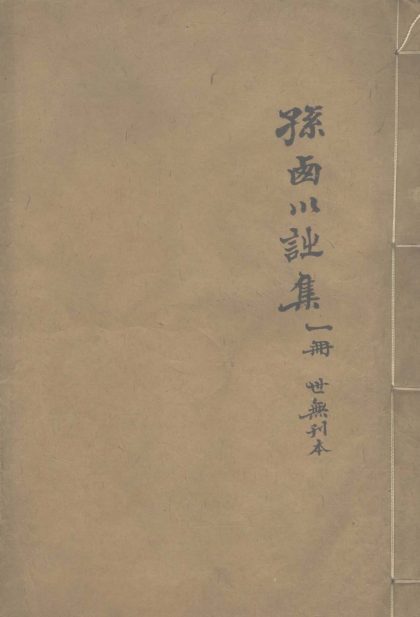 孫卥川詩集一冊 世無刊本